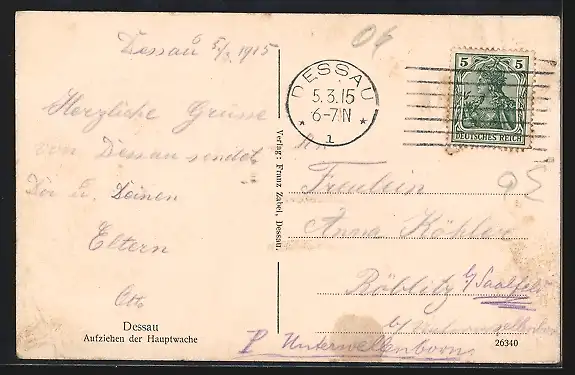 Dessau 5/3 1915
Herzliche Grüsse
von Dessau sendet
Dir u. Deinen
Eltern
Otto
Dessau
Aufziehen der Hauptwache
Verlag: Franz Zabel, Dessau.
06
DESSAU
5.3.15
6-7N
* 1 *
5 5
DEUTSCHES REICH
Fräulein
Anna Köhler
Röblitz b/ Saalfeld
b/ Unterwellenborn
P Unterwellenborn
26340